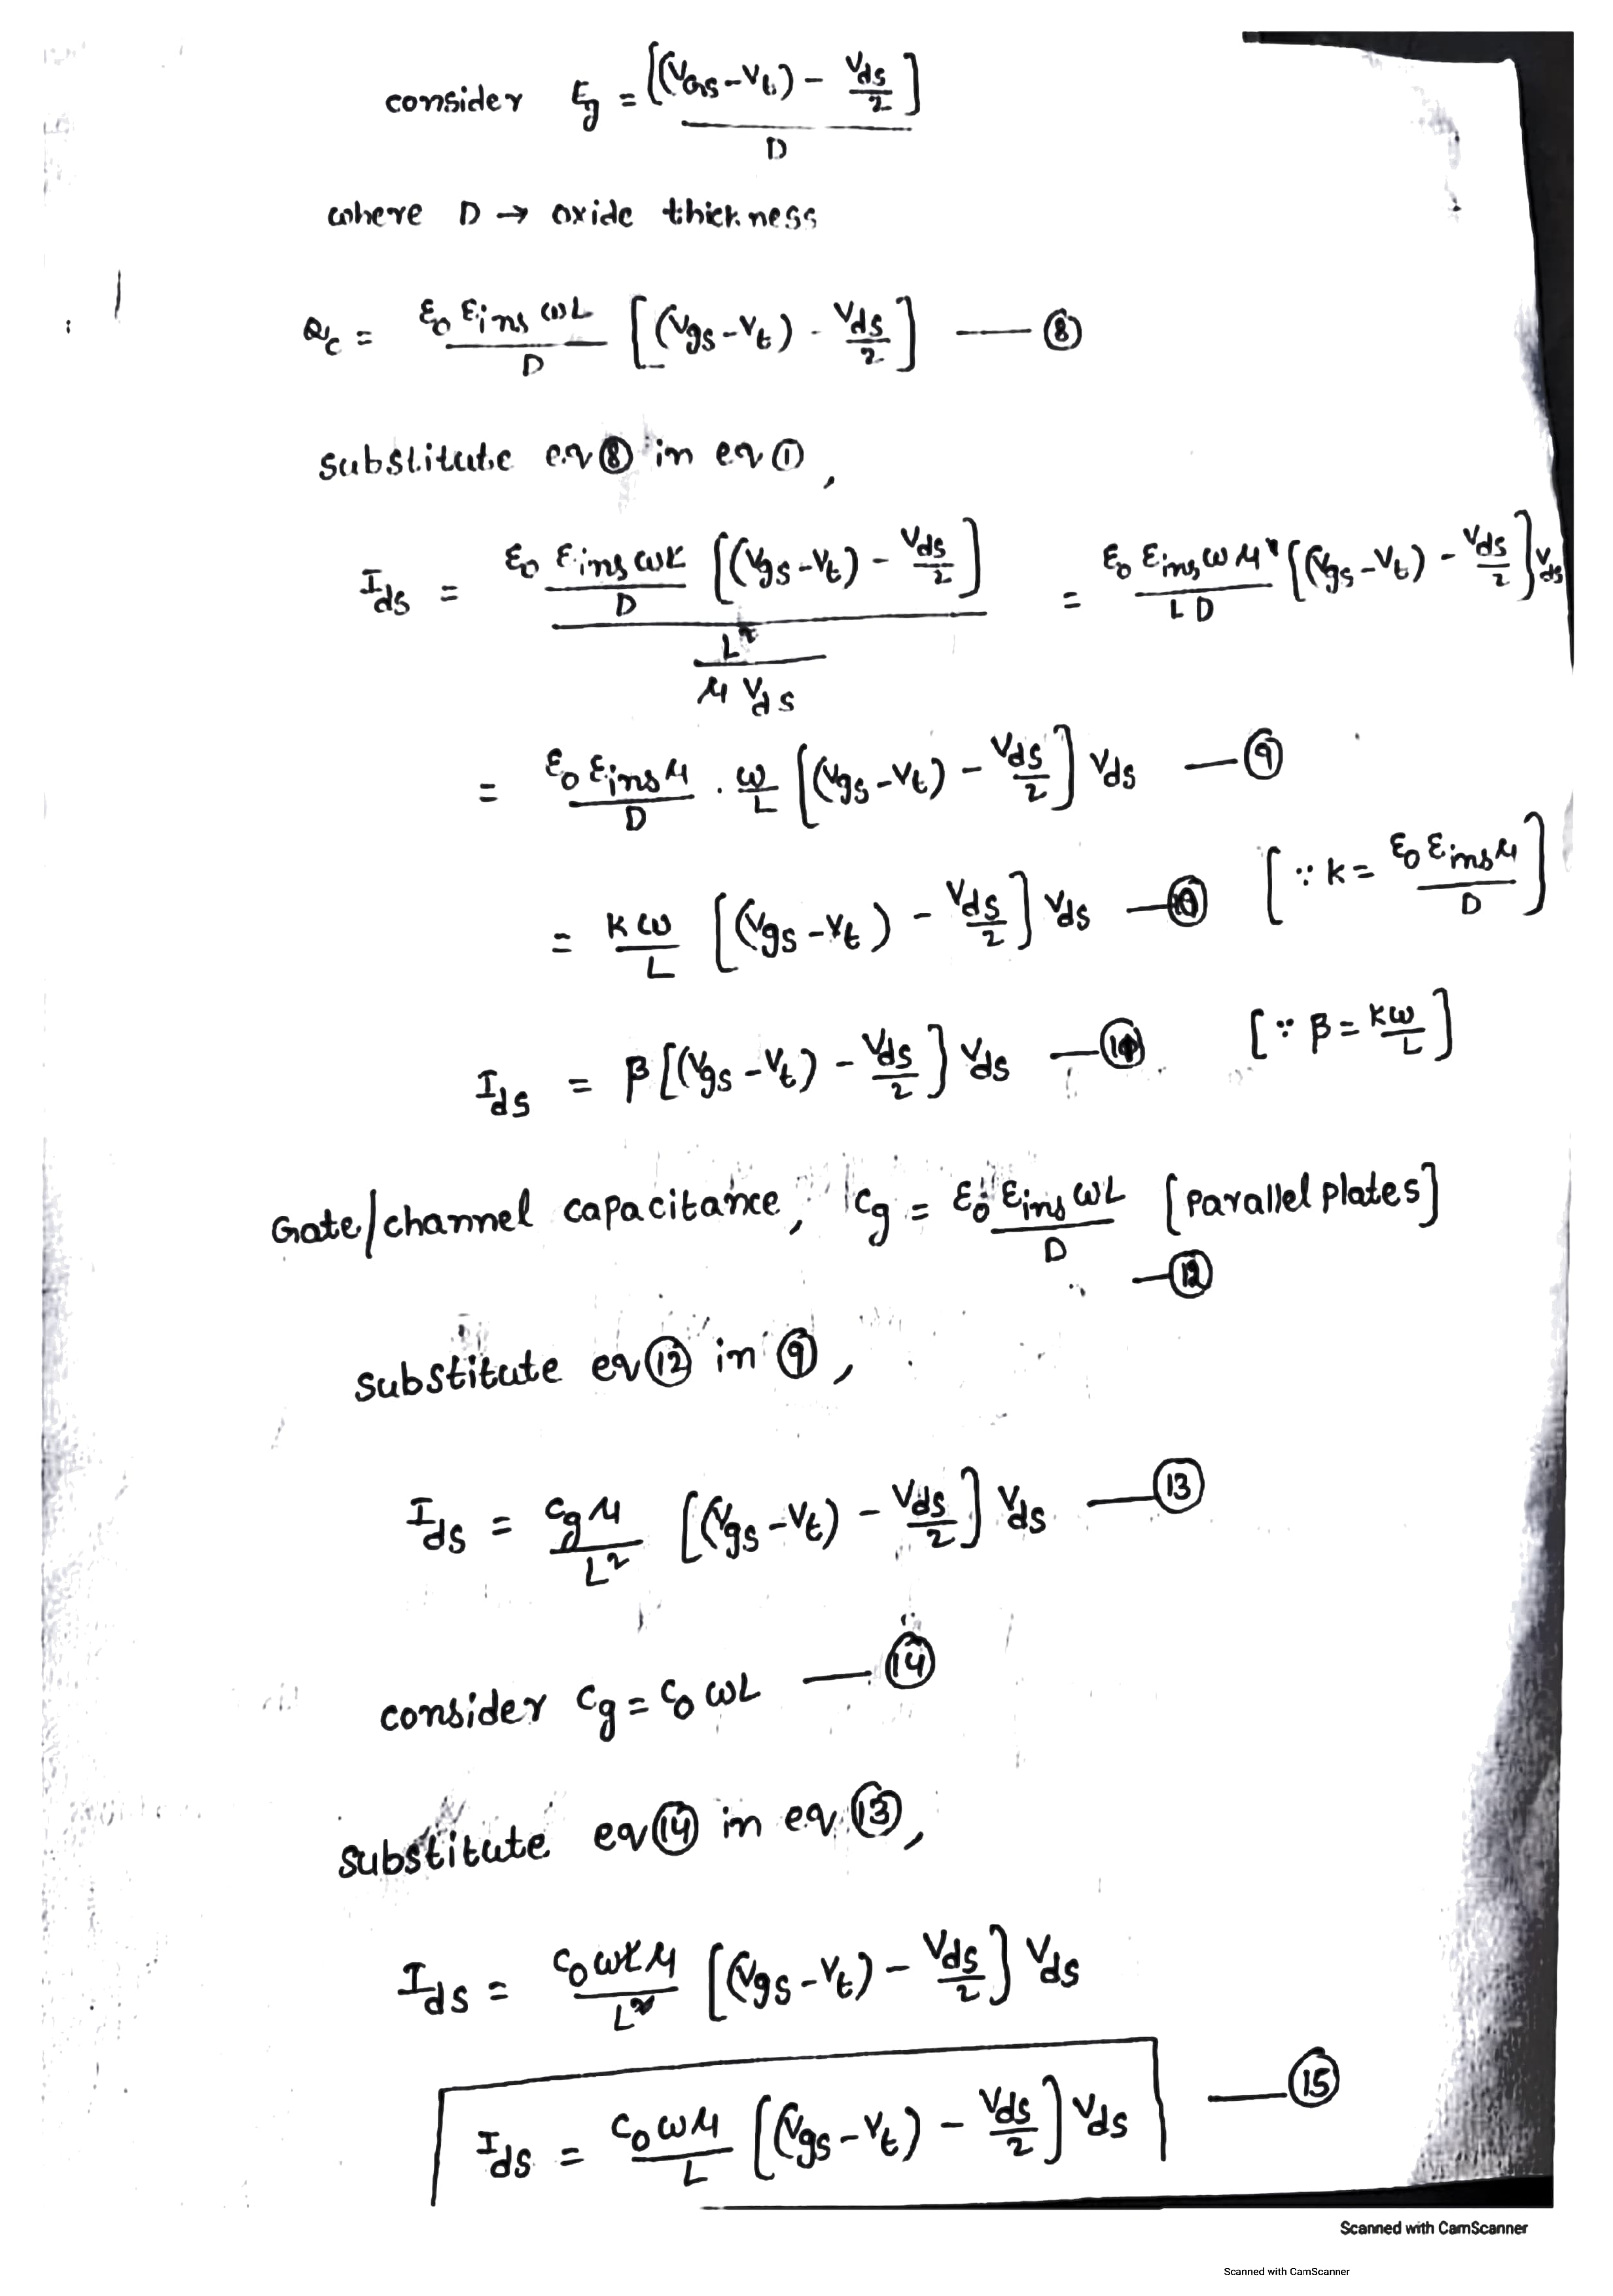 consider Eg = [(VGS-Vt) - Vds/2] / D
where D → oxide thickness
Qc = ε0 εins ωL / D [(Vgs-Vt) - Vds/2] — ⑧
substitute eq ⑧ in eq ①,
Ids = ε0 εins ωL / D [(Vgs-Vt) - Vds/2] / L² / μ Vds = ε0 εins ω μ / L D [(Vgs-Vt) - Vds/2] Vds
= ε0 εins μ / D . ω/L [(Vgs-Vt) - Vds/2] Vds — ⑨
= kω / L [(Vgs-Vt) - Vds/2] Vds — ⑩ [∵ k = ε0 εins μ / D]
Ids = β [(Vgs-Vt) - Vds/2] Vds — ⑪ [∵ β = kω/L]
Gate/channel capacitance, Cg = ε0 εins ωL / D [parallel plates]
— ⑫
substitute eq ⑫ in ⑨,
Ids = Cg μ / L² [(Vgs-Vt) - Vds/2] Vds — ⑬
consider Cg = C0 ωL — ⑭
substitute eq ⑭ in eq ⑬,
Ids = C0 ωL μ / L² [(Vgs-Vt) - Vds/2] Vds
Ids = C0 ω μ / L [(Vgs-Vt) - Vds/2] Vds — ⑮
Scanned with CamScanner
Scanned with CamScanner